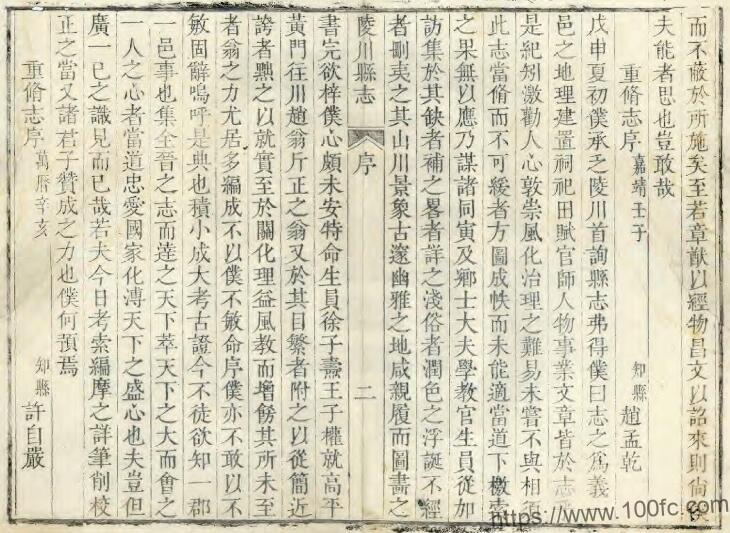 而不蔽於所施矣至若章猷以經物昌文以詒來則尚俟
夫能者思也豈敢哉
重脩志序 嘉靖壬子 知縣 趙孟乾
戊申夏初僕承乏陵川首詢縣志弗得僕曰志之爲義
邑之地理建置祠祀田賦官師人物事業文章皆於志
是紀矧激勸人心敦崇風化治理之難易未嘗不與相須
此志當脩而不可緩者方圖成帙而未能適當道下檄
之果無以應乃謀諸同寅及鄉士大夫學教官生員從加
訪集於其缺者補之畧者詳之淺俗者潤色之浮誕不經
者刪夷之其山川景象古邃幽雅之地咸親履而圖畵之
陵川縣志 序 二
書完欲梓僕心頗未安特命生員徐子壽王子權就高平
黃門往川趙翁斤正之翁又於其目繁者附之以從簡近
誇者㸃之以就實至於關化理益風教而增餝其所未至
者翁之力尤居多編成不以僕不敏命序僕亦不敢以不
敏固辭嗚呼是典也積小成大考古證今不徒欲知一郡
一邑事也集全晉之志而達之天下萃天下之大而會之
一人之心者當道忠愛國家化溥天下之盛心也夫豈但
廣一己之識見而已哉若夫今日考索編摩之詳筆削校
正之當又諸君子贊成之力也僕何預焉
重脩志序 萬曆辛亥 知縣 許自嚴
https://www.100fc.com